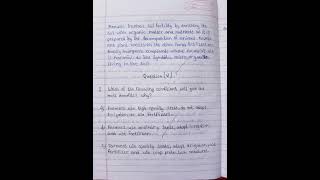 Manure: Increases soil fertility by enriching the
soil with organic matter and nutrients as it is
prepared by the decomposition of animal excreta
and plant wastes. On the other hand, fertilizers are
mostly inorganic compounds whose excessive use
is harmful to the symbiotic micro-organisms
living in the soil.
Question (4)
Which of the following conditions will give the
most benefits? Why?
a) Farmers use high quality seeds, do not adopt
irrigation or use fertilizers.
b) Farmers use ordinary seeds, adopt irrigation
and use fertilizer.
c) Farmers use quality seeds, adopt irrigation, use
fertilizer and use crop protection measures.